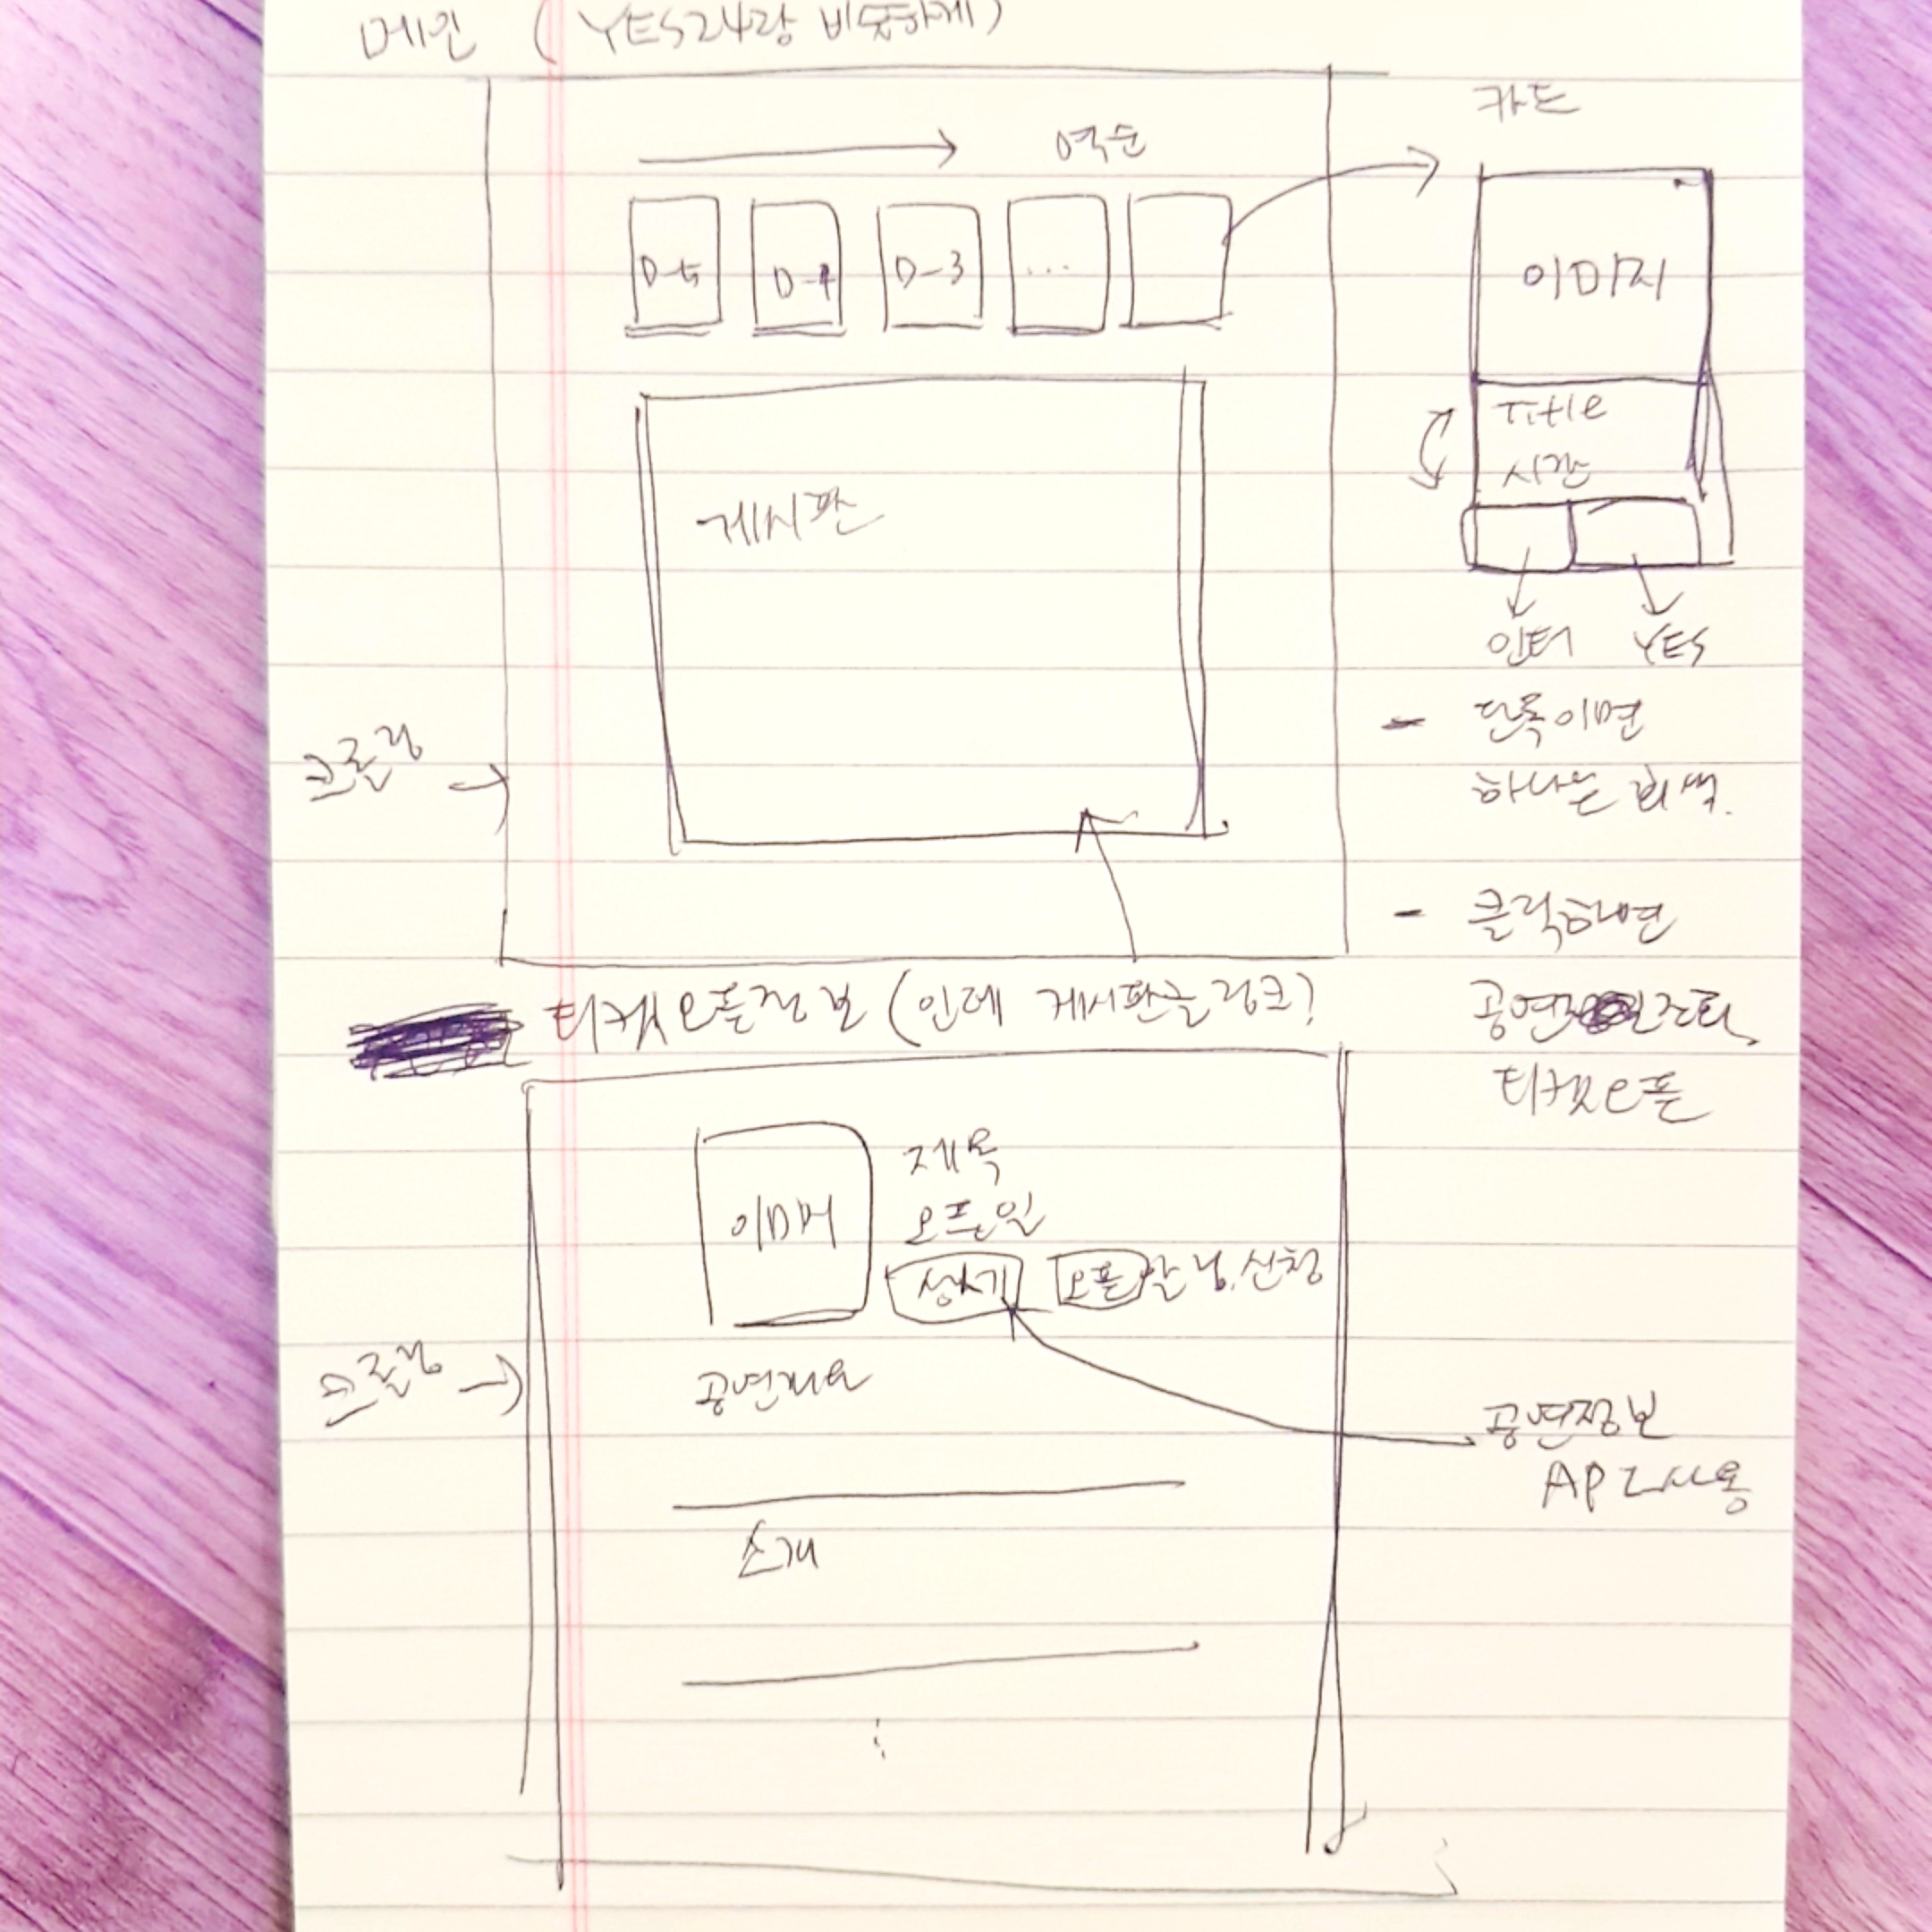 메인 (YES24랑 비슷하게)
카드
역순
D-5
D-4
D-3
...
이미지
Title
시간
게시판
인터
YES
- 단독이면
하나는 회색.
크롤링
- 클릭하면
티켓오픈정보 (인데 게시판글링크?
공연
티켓오픈
이미지
제목
오픈일
상세
오픈 알림.신청
크롤링
공연개요
공연정보
API사용
소개